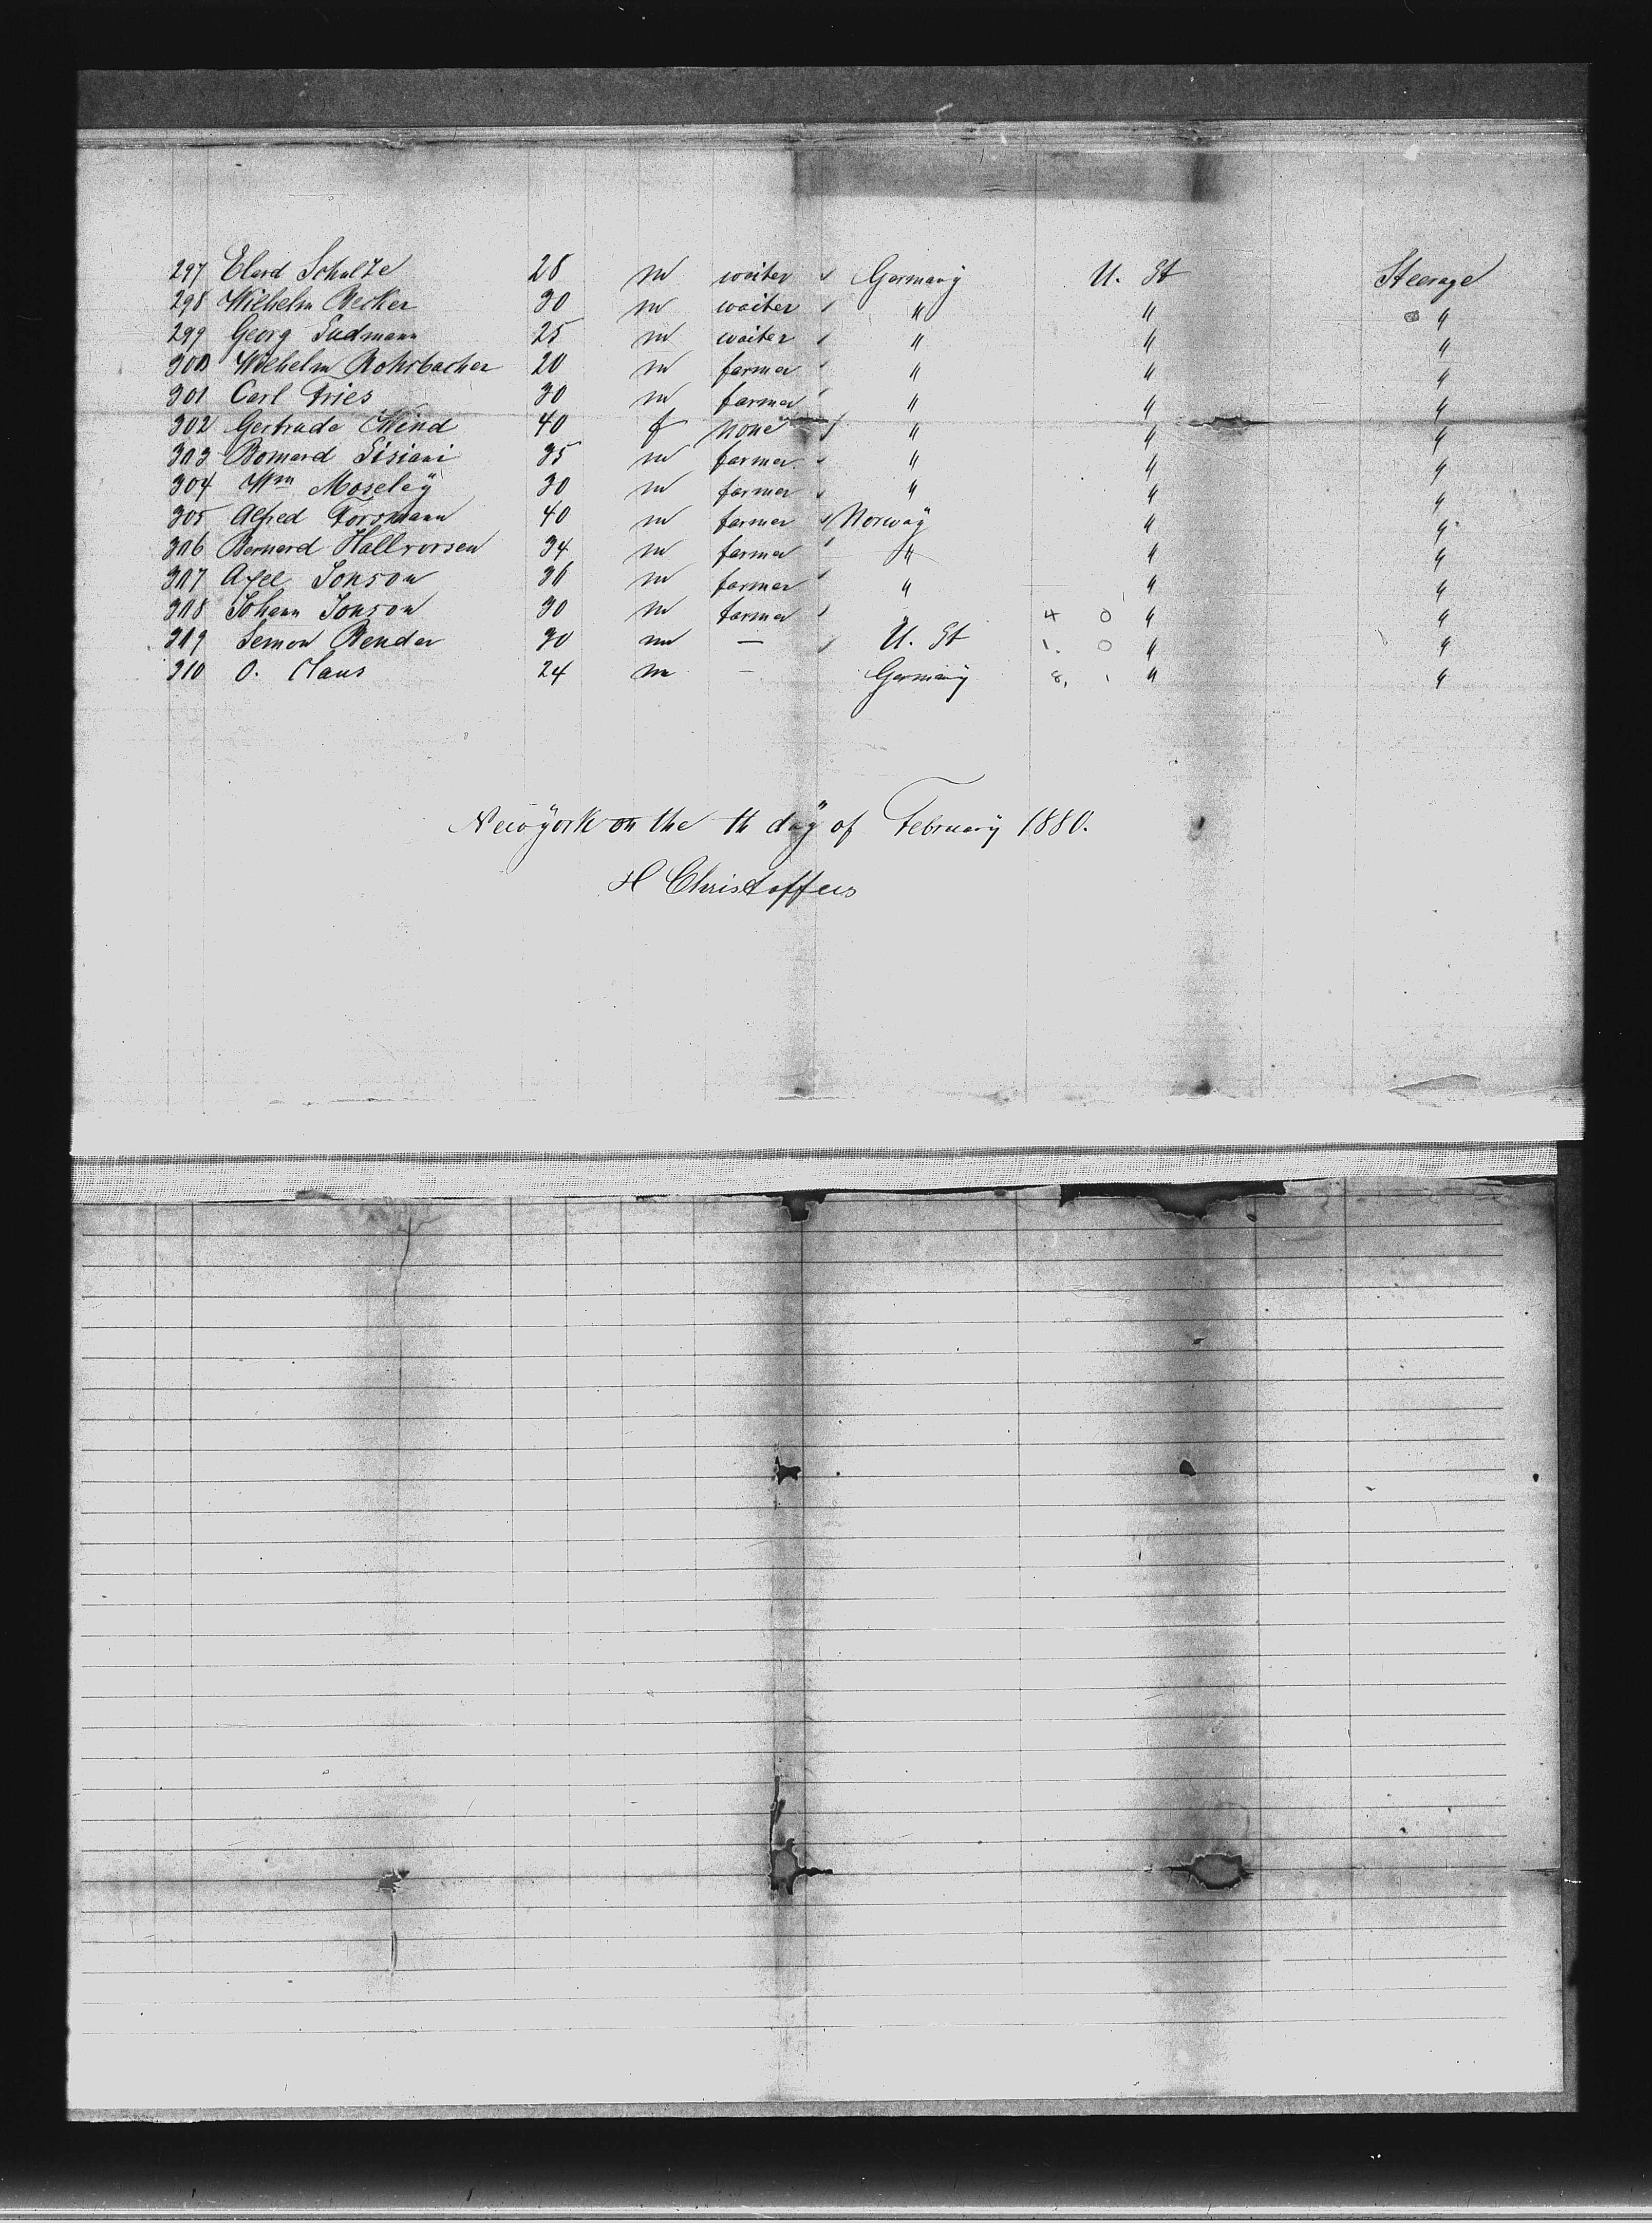 297 Elard Schulze 28 m waiter ✓ Germany U. St Steerage
298 Wilhelm Becker 30 m waiter ✓ " " "
299 Georg Sudmann 25 m waiter ✓ " " "
300 Wilhelm Rohrbacher 20 m farmer ✓ " " "
301 Carl Fries 30 m farmer ✓ " " "
302 Gertrude Wend 40 f none ✓ " " "
303 Bomard Sisiani 35 m farmer ✓ " " "
304 Wm Moseley 30 m farmer ✓ " " "
305 Alfred Forsmann 40 m farmer ✓ Norway " "
306 Bernard Hallvorsen 34 m farmer ✓ " " "
307 Axel Jonson 36 m farmer ✓ " " "
308 Johann Jonson 30 m farmer ✓ " 4 0 " "
309 Semon Bender 30 m — ✓ U. St 1. 0 " "
310 O. Claus 24 m — Germany 8, 1 " "
Newyork on the th day of February 1880.
H Christoffers